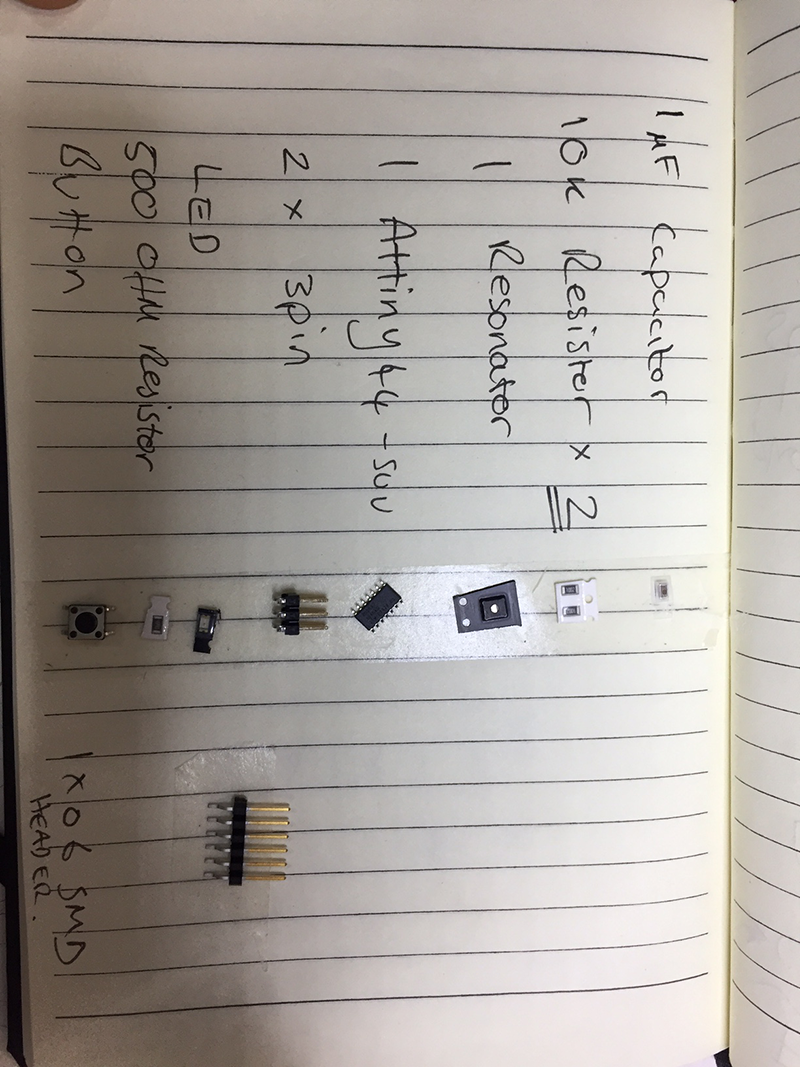 1 µF Capacitor
10K Resister x 2
1 Resonator
1 Attiny 44 - SUU
2 x 3pin
LED
500 OHM Resistor
Button
1 x 06 SMD
HEADER.